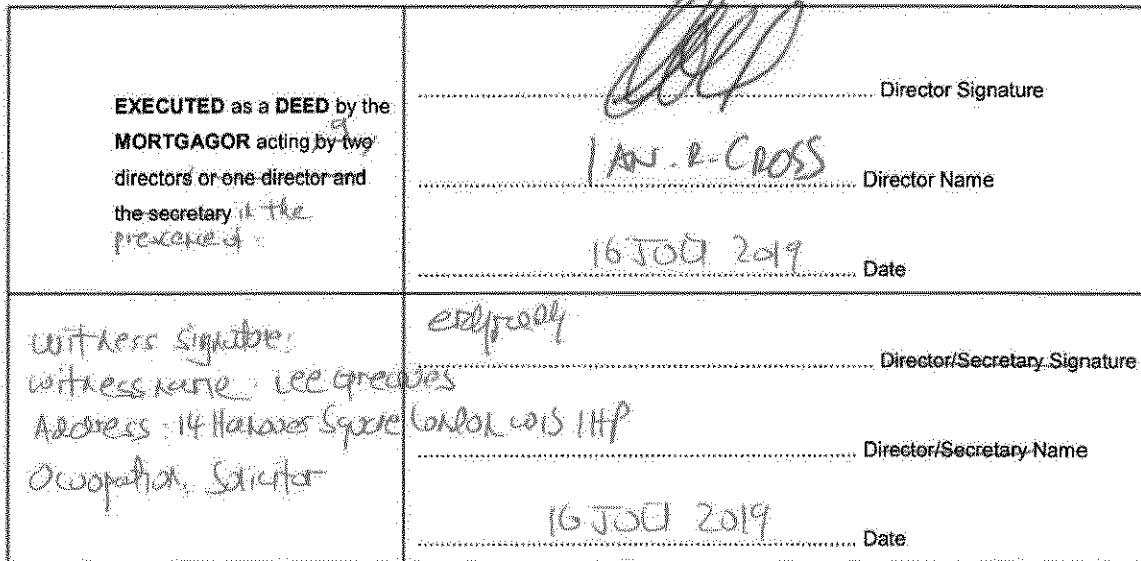 EXECUTED as a DEED by the
MORTGAGOR acting by two a
directors or one director and
the secretary in the
presence of:
Director Signature
IAN. R. CROSS Director Name
16 JULY 2019 Date
Witness signature:
Witness name: Lee Greaves
Address: 14 Hanover Square London W1S 1HP
Occupation: Solicitor
Director/Secretary Signature
Director/Secretary Name
16 JULY 2019 Date